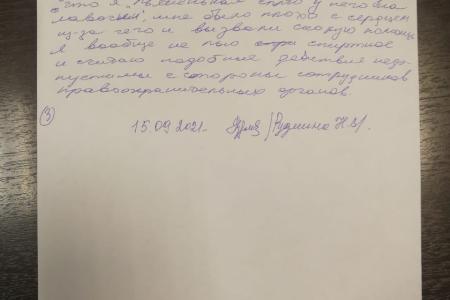 что я пьяненькая сплю у него на
лавочке, мне было плохо с сердцем
из-за чего и вызвали скорую помощь
Я вообще не пью спиртное
и считаю подобные действия недо-
пустимы с стороны сотрудников
правоохранительных органов.
③ 15.09.2021.